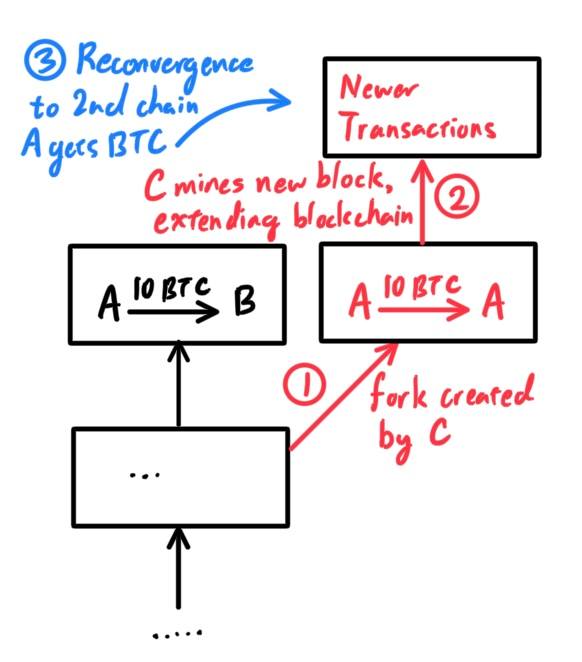 ③ Reconvergence
to 2nd chain
A gets BTC
Newer
Transactions
C mines new block,
extending blockchain
②
A 10 BTC B
A 10 BTC A
①
fork created
by C
...
.....